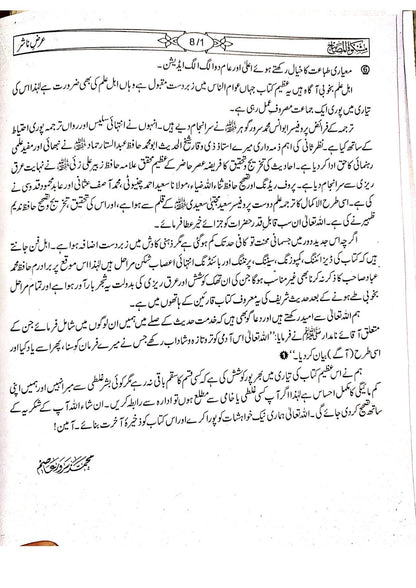 عرض ناشر
8/1
مشکوٰۃ المصابیح
⑥ معیاری طباعت کا خیال رکھتے ہوئے اعلیٰ اور عام دو الگ الگ ایڈیشن۔
اہل علم بخوبی آگاہ ہیں یہ عظیم کتاب جہاں عوام الناس میں زبردست مقبول ہے وہاں اہل علم کی بھی ضرورت ہے لہٰذا اس کی
تیاری میں پوری ایک جماعت مصروف عمل رہی ہے۔
ترجمہ کے فرائض پروفیسر ابو انس محمد سرور گوہر نے سرانجام دیے ہیں۔ انہوں نے انتہائی سلیس اور رواں ترجمہ پوری احتیاط
کے ساتھ کیا ہے۔ نظر ثانی کی اہم ذمہ داری میرے استاذ گرامی قدر شیخ الحدیث ابو محمد حافظ عبدالستار حماد نے نبھائی اور مفید علمی
رہنمائی کا حق ادا کر دیا ہے۔ احادیث کی تخریج و تحقیق کا فریضہ عصر حاضر کے عظیم محقق علامہ حافظ زبیر علی زئی نے نہایت عرق
ریزی سے سرانجام دیا ہے۔ پروف ریڈنگ اور تصحیح حافظ ثناء اللہ ضیاء، مولانا سعید احمد چنیوٹی، محمد آصف عثمانی اور عابد محمود قدوسی نے
کی ہے۔ اسی طرح الاکمال کا ترجمہ علم دوست پروفیسر سعید مجتبیٰ سعیدی کے قلم سے ہوا ہے، اور اس کی تحقیق تخریج و تصحیح حافظ ندیم
ظہیر نے کی ہے۔ اللہ تعالیٰ ان سب قابل قدر حضرات کو جزائے خیر عطا فرمائے۔
اگرچہ اس جدید دور میں جسمانی محنت تو کافی حد تک کم ہو گئی ہے مگر ذہنی کاوش میں زبردست اضافہ ہوا ہے۔ اہل فن جانتے
ہیں کہ کتاب کی ڈیزائننگ، کمپوزنگ، سیٹنگ، پرنٹنگ اور بائنڈنگ انتہائی اعصاب شکن مراحل ہیں لہٰذا اس موقع پر برادرم حافظ محمد
عباد صاحب کا ذکر نہ کرنا بھی غیر مناسب ہو گا جن کی ان تھک کوشش اور عرق ریزی کی بدولت یہ شجر بار آور ہوا ہے اور تمام مراحل
بخوبی طے ہونے کے بعد حدیث شریف کی یہ معروف کتاب قارئین کے ہاتھوں میں ہے۔
ہم اللہ تعالیٰ سے امید رکھتے ہیں اور دعا گو بھی ہیں کہ خدمت حدیث کے صلے میں ہمیں ان لوگوں میں شامل فرمائے جن کے
متعلق آقائے نامدار ﷺ نے فرمایا: ”اللہ تعالیٰ اس آدمی کو تر و تازہ و شاداب رکھے جس نے میرے فرمان کو سنا، پھر اسے یاد کیا اور
اسی طرح (آگے) بیان کر دیا۔“ ❶
ہم نے اس عظیم کتاب کی تیاری میں بھرپور کوشش کی ہے کہ کسی قسم کا سقم باقی نہ رہے مگر کوئی بشر غلطی سے مبرا نہیں اور ہمیں اپنی
کم مائیگی کا مکمل احساس ہے لہٰذا اگر آپ کسی غلطی یا خامی سے مطلع ہوں تو ادارہ سے رابطہ کریں۔ ان شاء اللہ آپ کے شکریہ کے
ساتھ تصحیح کر دی جائے گی۔ اللہ تعالیٰ ہماری نیک خواہشات کو پورا کرے اور اس کتاب کو ذخیرۂ آخرت بنائے۔ آمین!
محمد سرور عاصم